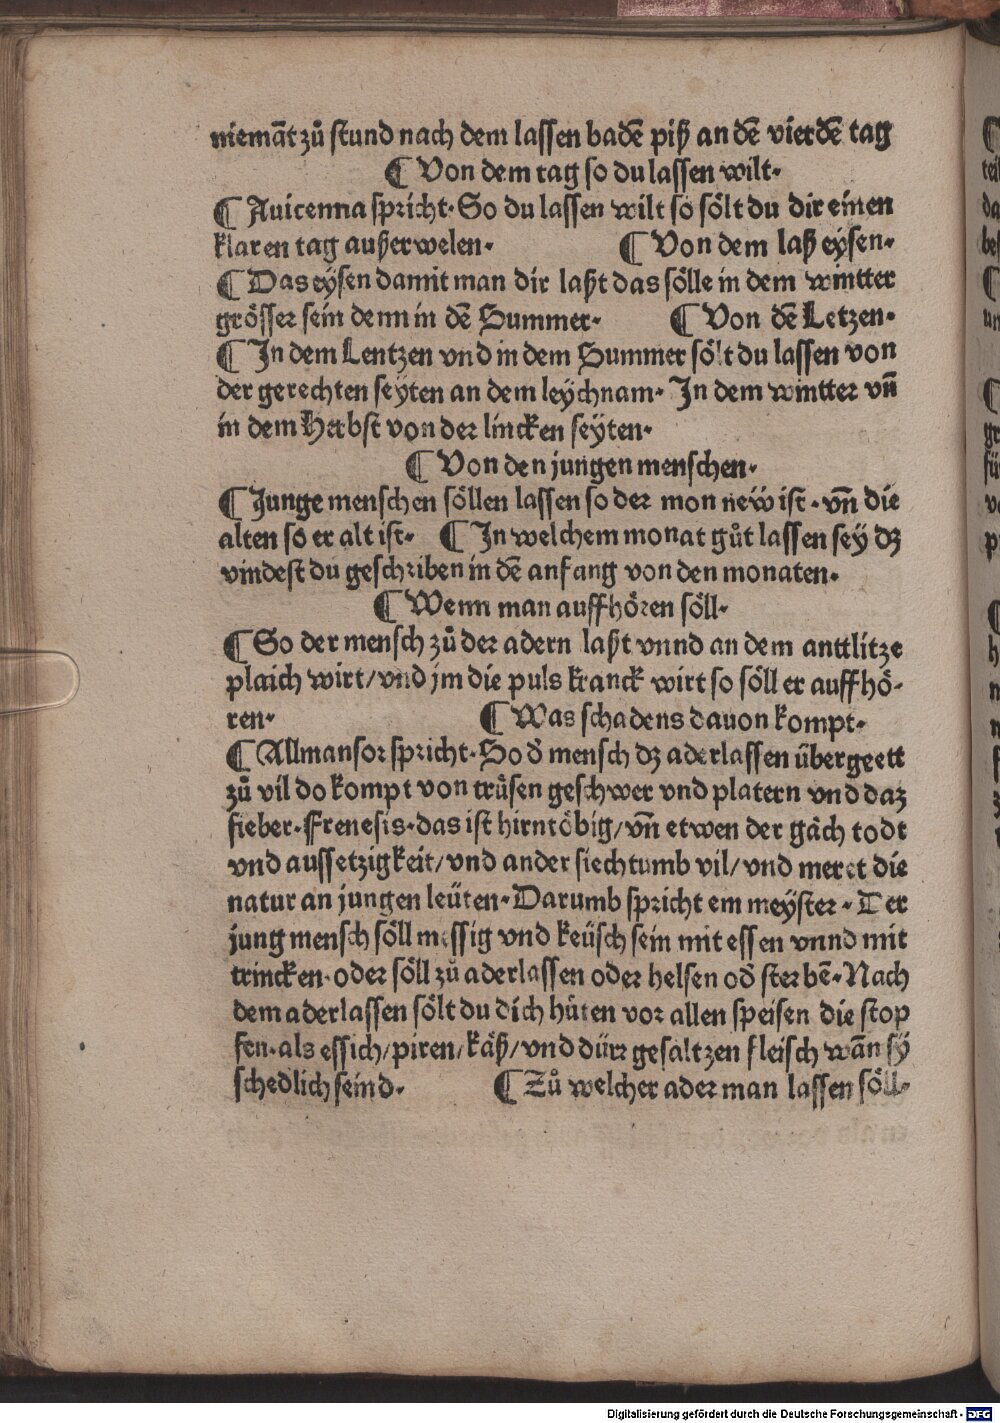 niemãt zů stund nach dem lassen badẽ piß an dẽ vierdẽ tag
¶ Von dem tag so du lassen wilt.
¶ Auicenna spricht. So du lassen wilt so sölt du dir einen
klaren tag außerwelen. ¶ Von dem laß eysen.
¶ Das eysen damit man dir laßt das sölle in dem wintter
grösser sein denn in dẽ Summer. ¶ Von dẽ Letzen.
¶ In dem Lentzen vnd in dem Summer sölt du lassen von
der gerechten seyten an dem leychnam. In dem wintter vñ
in dem Herbst von der lincken seyten.
¶ Von den jungen menschen.
¶ Junge menschen söllen lassen so der mon new ist. vñ die
alten so er alt ist. ¶ In welchem monat gůt lassen sey dz
vindest du geschriben in dẽ anfang von den monaten.
¶ Wenn man auffhören söll.
¶ So der mensch zů der adern laßt vnnd an dem anttlitze
plaich wirt/ vnd jm die puls kranck wirt so söll er auffhö-
ren. ¶ Was schadens dauon kompt.
¶ Allmansor spricht. So d̄ mensch dz aderlassen übergeett
zů vil do kompt von trüsen geschwer vnd platern vnd daz
fieber. Frenesis. das ist hirntöbig/ vñ etwen der gäch todt
vnd aussetzigkeit/ vnd ander siechtumb vil/ vnd meret die
natur an jungen leüten. Darumb spricht em meyster. Der
jung mensch söll messig vnd keüsch sein mit essen vnnd mit
trincken. oder söll zů aderlassen oder helsen od̄ sterbẽ. Nach
dem aderlassen sölt du dich hüten vor allen speisen die stop
fen. als essich/ piren/ käß/ vnd dürr gesaltzen fleisch wãn sy
schedlich seind. ¶ Zů welcher ader man lassen söll.
Digitalisierung gefördert durch die Deutsche Forschungsgemeinschaft - DFG